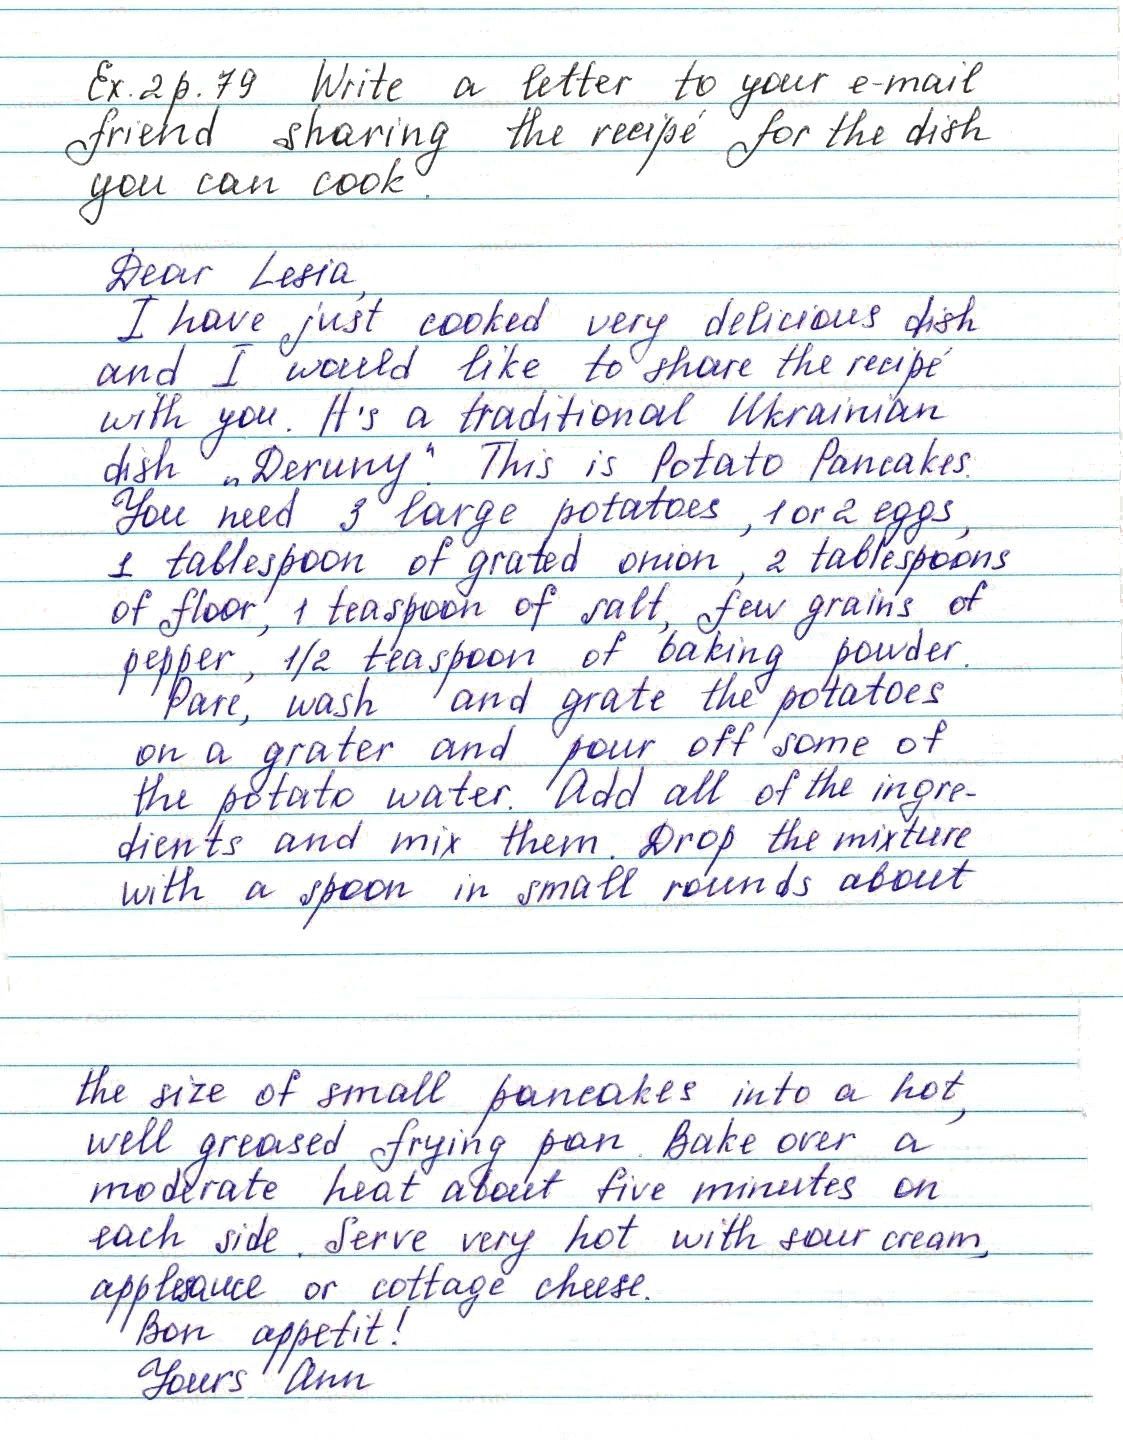 Ex. 2 p. 79 Write a letter to your e-mail
friend sharing the recipé for the dish
you can cook.
Dear Lesia,
I have just cooked very delicious dish
and I would like to share the recipé
with you. It's a traditional Ukrainian
dish „Deruny“. This is Potato Pancakes.
You need 3 large potatoes, 1 or 2 eggs,
1 tablespoon of grated onion, 2 tablespoons
of floor, 1 teaspoon of salt, few grains of
pepper, 1/2 teaspoon of baking powder.
Pare, wash and grate the potatoes
on a grater and pour off some of
the potato water. Add all of the ingre-
dients and mix them. Drop the mixture
with a spoon in small rounds about
the size of small pancakes into a hot,
well greased frying pan. Bake over a
moderate heat about five minutes on
each side. Serve very hot with sour cream,
applesauce or cottage cheese.
Bon appetit!
Yours Ann